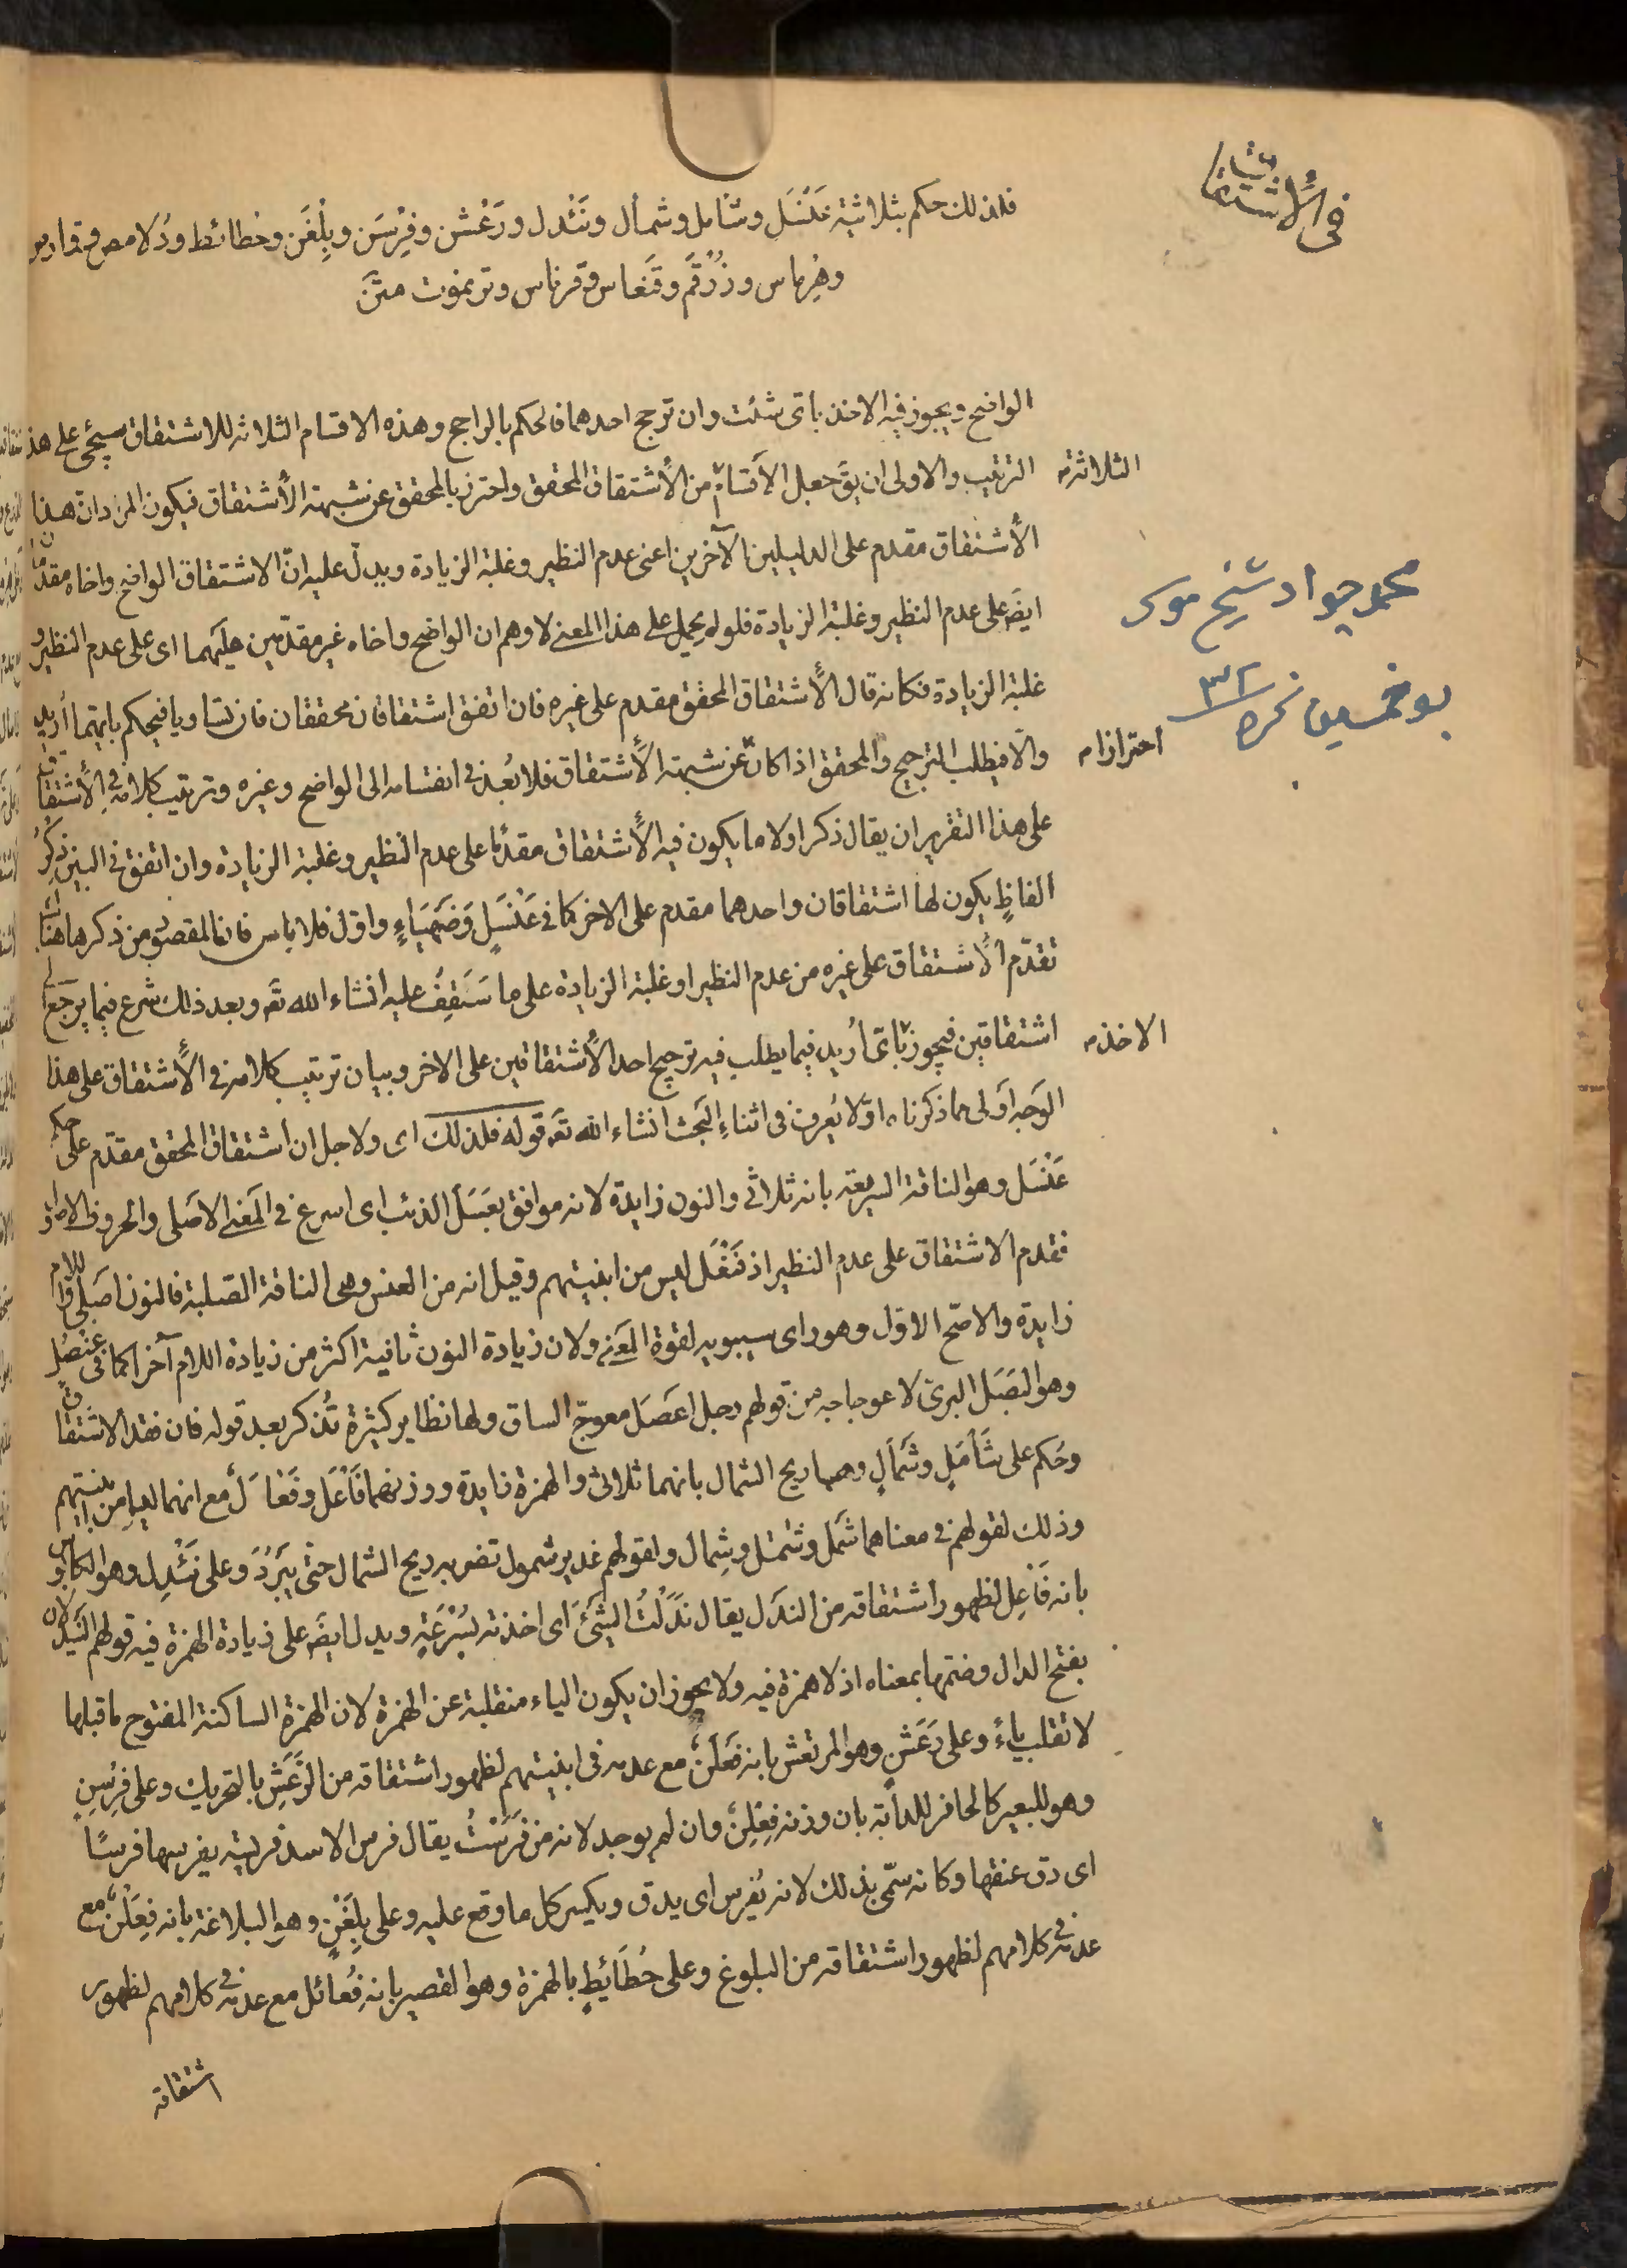 في الأشتقاق
فلذلك حكم بثلاثية عَنْسَل وشأمل وشمأل ونَئْدل ورَعْشن وفِرْسَن وبِلَغْن وحُطائط ودُلامص وقمارص
وهِرماس وزُرْقُم وقِنعاس وقرناس وترنموت متن
الواضح ويجوز فيه الاخذ باى شئت وان ترجح احدهما فالحكم بالراجح وهذه الاقسام الثلاثه للاشتقاق سيجئ على هذا
الثلاثة
الترتيب والاولى ان يقَ جعل الأقسام من الأشتقاق المحقق واحترز بالمحقق عن شبهة الأشتقاق فيكون المراد ان هذا
الأشتقاق مقدم على الدليلين الآخرين اعنى عدم النظير وغلبة الزيادة ويدلّ عليه انّ الاشتقاق الواضح واخاه مقدّمان
ايضَ على عدم النظير وغلبة الزيادة فلو لم يحمل على هذا المعنى لاوهم ان الواضح واخاه غير مقدّمين عليهما اى على عدم النظير و
غلبة الزيادة فكانه قال الأشتقاق المحقق مقدم على غيره فان اتفق اشتقاقان محققان فان تساويا فيحكم بايهما أريد
والّا فيطلب الترجيح والمحقق اذا كان عن شبهة الأشتقاق فلا بُعد في انقسامه الى الواضح وغيره وترتيب كلامه في الأشتقاق
احترازا
على هذا التقرير ان يقال ذكر اولا ما يكون فيه الأشتقاق مقدّما على عدم النظير وغلبة الزيادة وان اتفق في البين ذِكْرُ
الفاظٍ يكون لها اشتقاقان واحدهما مقدم على الاخر كما في عَنْسَلٍ وَضَهْيَاءٍ واوّل فلا باس فان المقصود من ذكرها هنا
تقدّم الأشتقاق على غيره من عدم النظير او غلبة الزيادة على ما سَتَقِفُ عليه انشاء الله تعَ وبعد ذلك شرع فيما يرجع الى
اشتقاقين فيجوز باىّ أريد فيما يطلب فيه ترجيح احد الأشتقاقين على الاخر وبيان ترتيب كلامه في الأشتقاق على هذا
الاخذ
الوَجه اَولى مما ذكرناه اوّلا يُعرف في اثناءِ البَحث انشاء الله تعَ قوله فلذلك اى ولاجل ان اشتقاق المحقق مقدّم حكم على
عَنْسَل وهو الناقة السريعة بانه ثلاثى والنون زايدة لانه موافق بعَسَل الذئب اى اسرع في المَعنى الاصَلى والحروف الاصول
فقدم الاشتقاق على عدم النظير اذ فَنْعَل ليس من ابنيتهم وقيل انه من العنس وهى الناقة الصّلبة فالنون اصَلى واللام
زايدة والاصح الاوّل وهو راى سيبويه لقوة المعنى ولان زيادة النون ثانية اكثر من زيادة اللام آخرا كما في عنصُلٍ
وهو البَصَل البرىّ لاعوجاجه من قولهم رجل اعصَل معوجّ الساق ولها نظاير كثيرة تُذكر بعد قوله فان فقد الاشتقاق
وحُكم على شَأْمَلٍ وشَمأَلٍ وهما ريح الشمال بانهما ثلاثى والهمزة زايدة ووزنهما فَأْعَل وفَعْأَل مع انهما ليسا من ابنيتهم
وذلك لقولهم في معناهما شَمَل وشَمْل وشِمال ولقولهم غدير شمول تضربه ريح الشمال حتّى يَبَرُد وعلى نَئْدِل وهو الكابوس
بانه فَأْعِل لظهور اشتقاقه من الندَل يقال نَدَلْتُ الشَئَ اى اخذته بُسْرعَةٍ ويدل ايضَ على زيادة الهمزة فيه قولهم النَيْدُلان
بفتح الدال وضمّها بمعناه اذ لا همزة فيه ولا يجوز ان يكون الياء منقلبة عن الهمزة لان الهمزة الساكنة المفتوح ما قبلها
لا تقلب ياءً وعلى رَعَشْنٍ وهو المرتعش بانه فَعْلَنٌ مع عدمه في ابنيتهم لظهور اشتقاقه من الرَعَشِ بالتحريك وعلى فِرْسِنٍ
وهو للبعير كالحافر للدابّة بان وزنه فِعْلِنٌ وان لم يوجد لانه من فَرَسْتُ يقال فرس الاسد فريسته يفرسها فرسًا
اى دق عنقها وكانه سمّى بذلك لانه يُفرس اى يدق ويكسر كل ما وقع عليه وعلى بِلَغْنٍ وهو البلاغة بانه فِعَلْنٌ مع
عدمه في كلامهم لظهور اشتقاقه من البلوغ وعلى حُطَائِطٍ بالهمزة وهو القصير بانه فُعائل مع عدمه في كلامهم لظهور
اشتقاقه
محمد جواد شيخ موسى